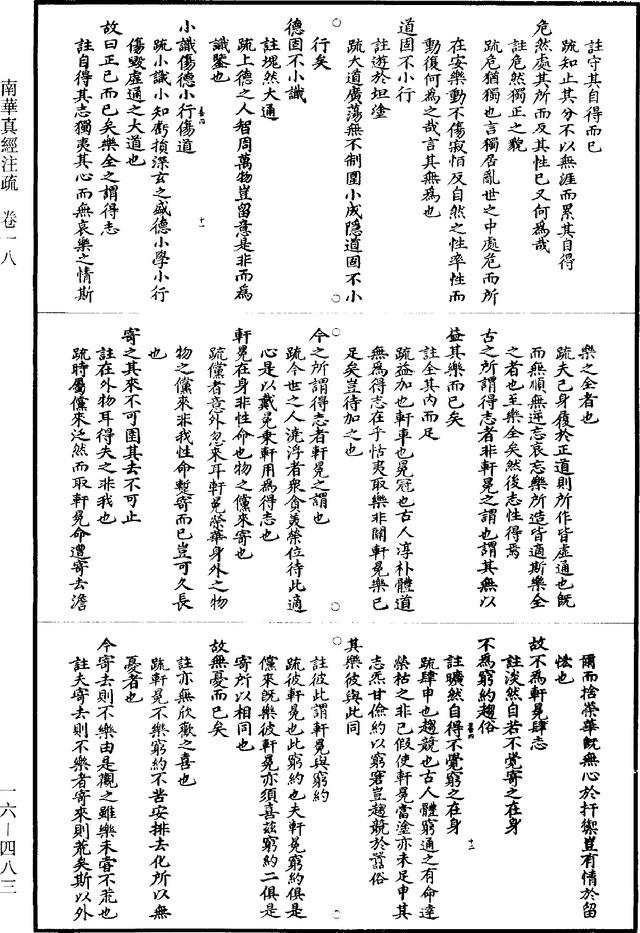 註守其自得而已
疏知止其分不以無涯而累其自得
危然處其所而反其性已又何為哉
註危然獨正之貌
疏危猶獨也言獨居亂世之中處危而所
在安樂動不傷寂恒反自然之性率性而
動復何為之哉言其無為也
道固不小行
註遊於坦塗
疏大道廣蕩無不制圍小成隱道固不小
行矣
德固不小識
註塊然大通
疏上德之人智周萬物豈留意是非而為
識鑒也
小識傷德小行傷道
疏小識小知虧損深玄之盛德小學小行
傷毀虛通之大道也
故曰正己而已矣樂全之謂得志
註自得其志獨夷其心而無哀樂之情斯
樂之全者也
疏夫己身履於正道則所作皆虛通也既
而無順無逆忘哀忘樂所造皆適斯樂全
之者也至樂全矣然後志性得焉
古之所謂得志者非軒冕之謂也謂其無以
益其樂而已矣
註全其內而足
疏益加也軒車也冕冠也古人淳朴體道
無為得志在乎恬夷取樂非關軒冕樂已
足矣豈待加之也
今之所謂得志者軒冕之謂也
疏今世之人澆浮者眾貪美榮位待此適
心是以戴冕乘軒用為得志也
軒冕在身非性命也物之儻來寄也
疏儻者意外忽來耳軒冕榮華身外之物
物之儻來非我性命暫寄而已豈可久長
也
寄之其來不可圉其去不可止
註在外物耳得失之非我也
疏時屬儻來泛然而取軒冕命遭寄去澹
爾而捨榮華既無心於扞禦豈有情於留
恡也
故不為軒冕肆志
註淡然自若不覺寄之在身
不為窮約趨俗
註曠然自得不覺窮之在身
疏肆申也趨競也古人體窮通之有命達
榮枯之非己假使軒冕當塗亦未足申其
志炁甘儉約以窮窘豈趨競於囂俗
其樂彼與此同
註彼此謂軒冕與窮約
疏彼軒冕也此窮約也夫軒冕窮約俱是
儻來既樂彼軒冕亦須喜茲窮約二俱是
寄所以相同也
故無憂而已矣
註亦無欣歡之喜也
疏軒冕不樂窮約不苦安排去化所以無
憂者也
今寄去則不樂由是觀之雖樂未甞不荒也
註夫寄去則不樂者寄來則荒矣斯以外
南華真經注疏　卷一八
一六—四八三